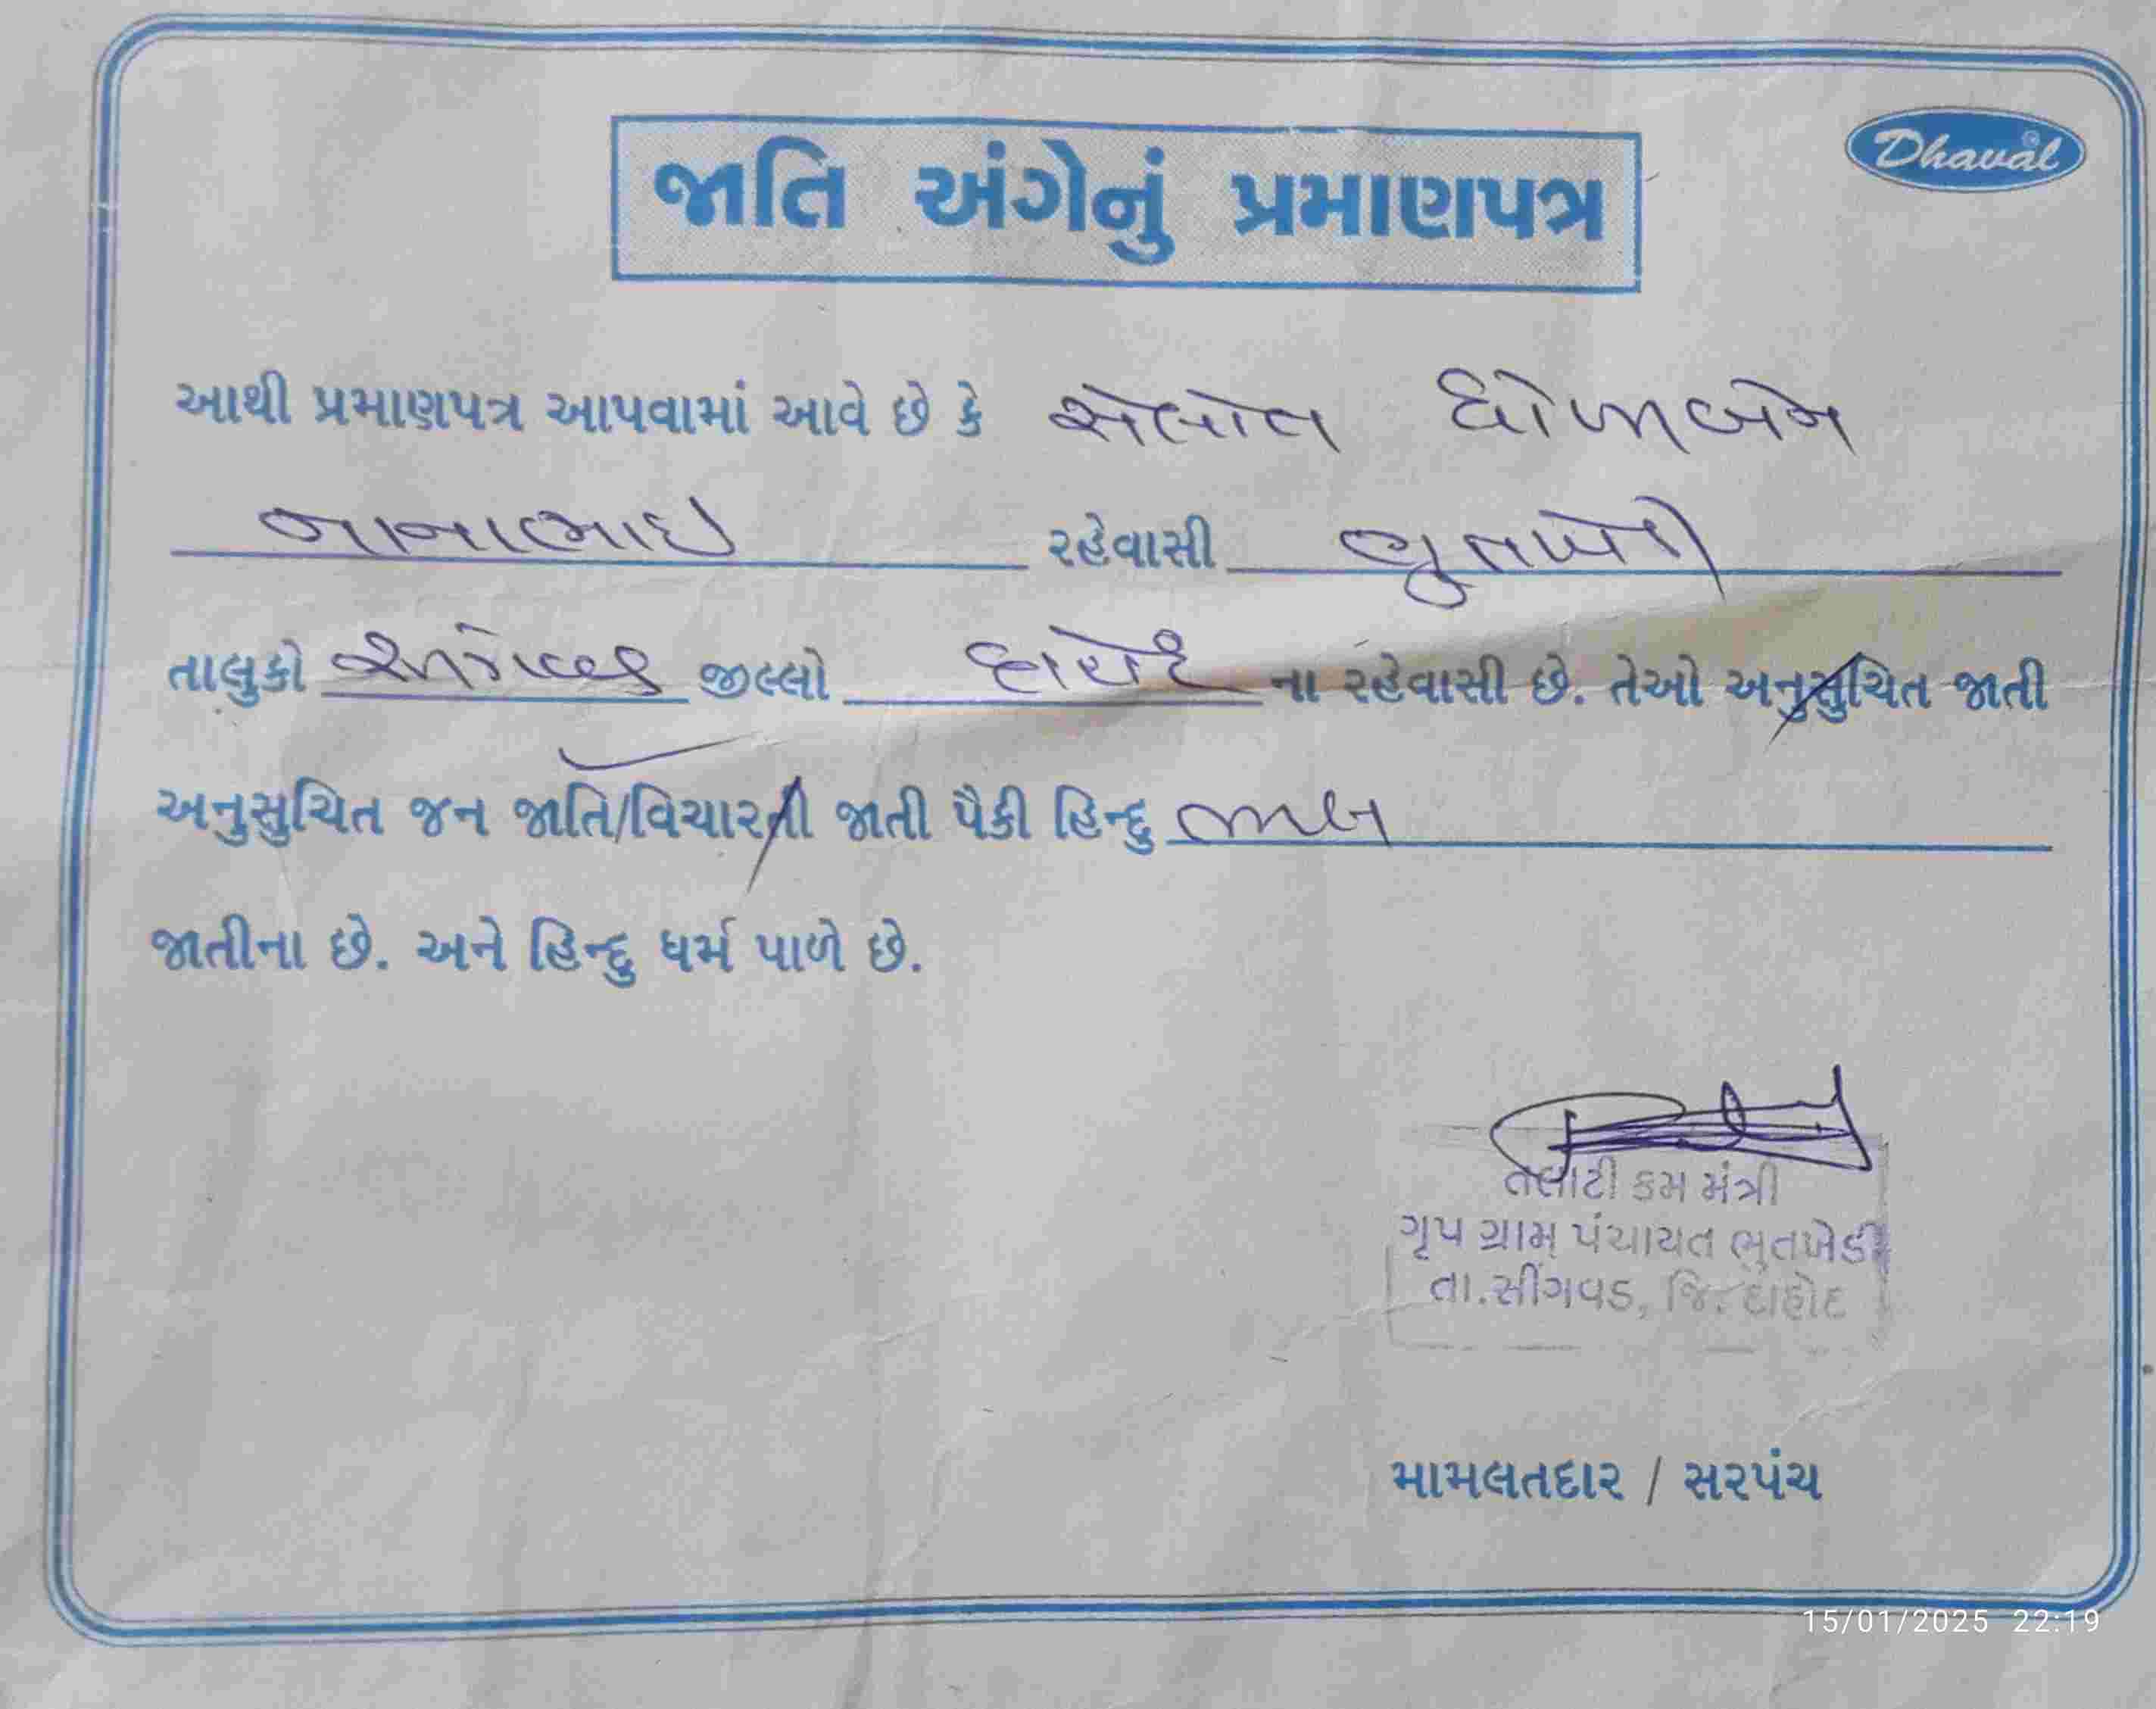 Dhaval
જાતિ અંગેનું પ્રમાણપત્ર
આથી પ્રમાણપત્ર આપવામાં આવે છે કે સેલોત ધોળાબેન
નાનાભાઇ રહેવાસી
તાલુકો જીલ્લો ના રહેવાસી છે. તેઓ અનુસુચિત જાતી
અનુસુચિત જન જાતિ/વિચારતી જાતી પૈકી હિન્દુ
જાતીના છે. અને હિન્દુ ધર્મ પાળે છે.
તલાટી કમ મંત્રી
ગૃપ ગ્રામ પંચાયત ભુતખેડી
તા.સીંગવડ, જિ. દાહોદ
મામલતદાર / સરપંચ
15/01/2025 22:19